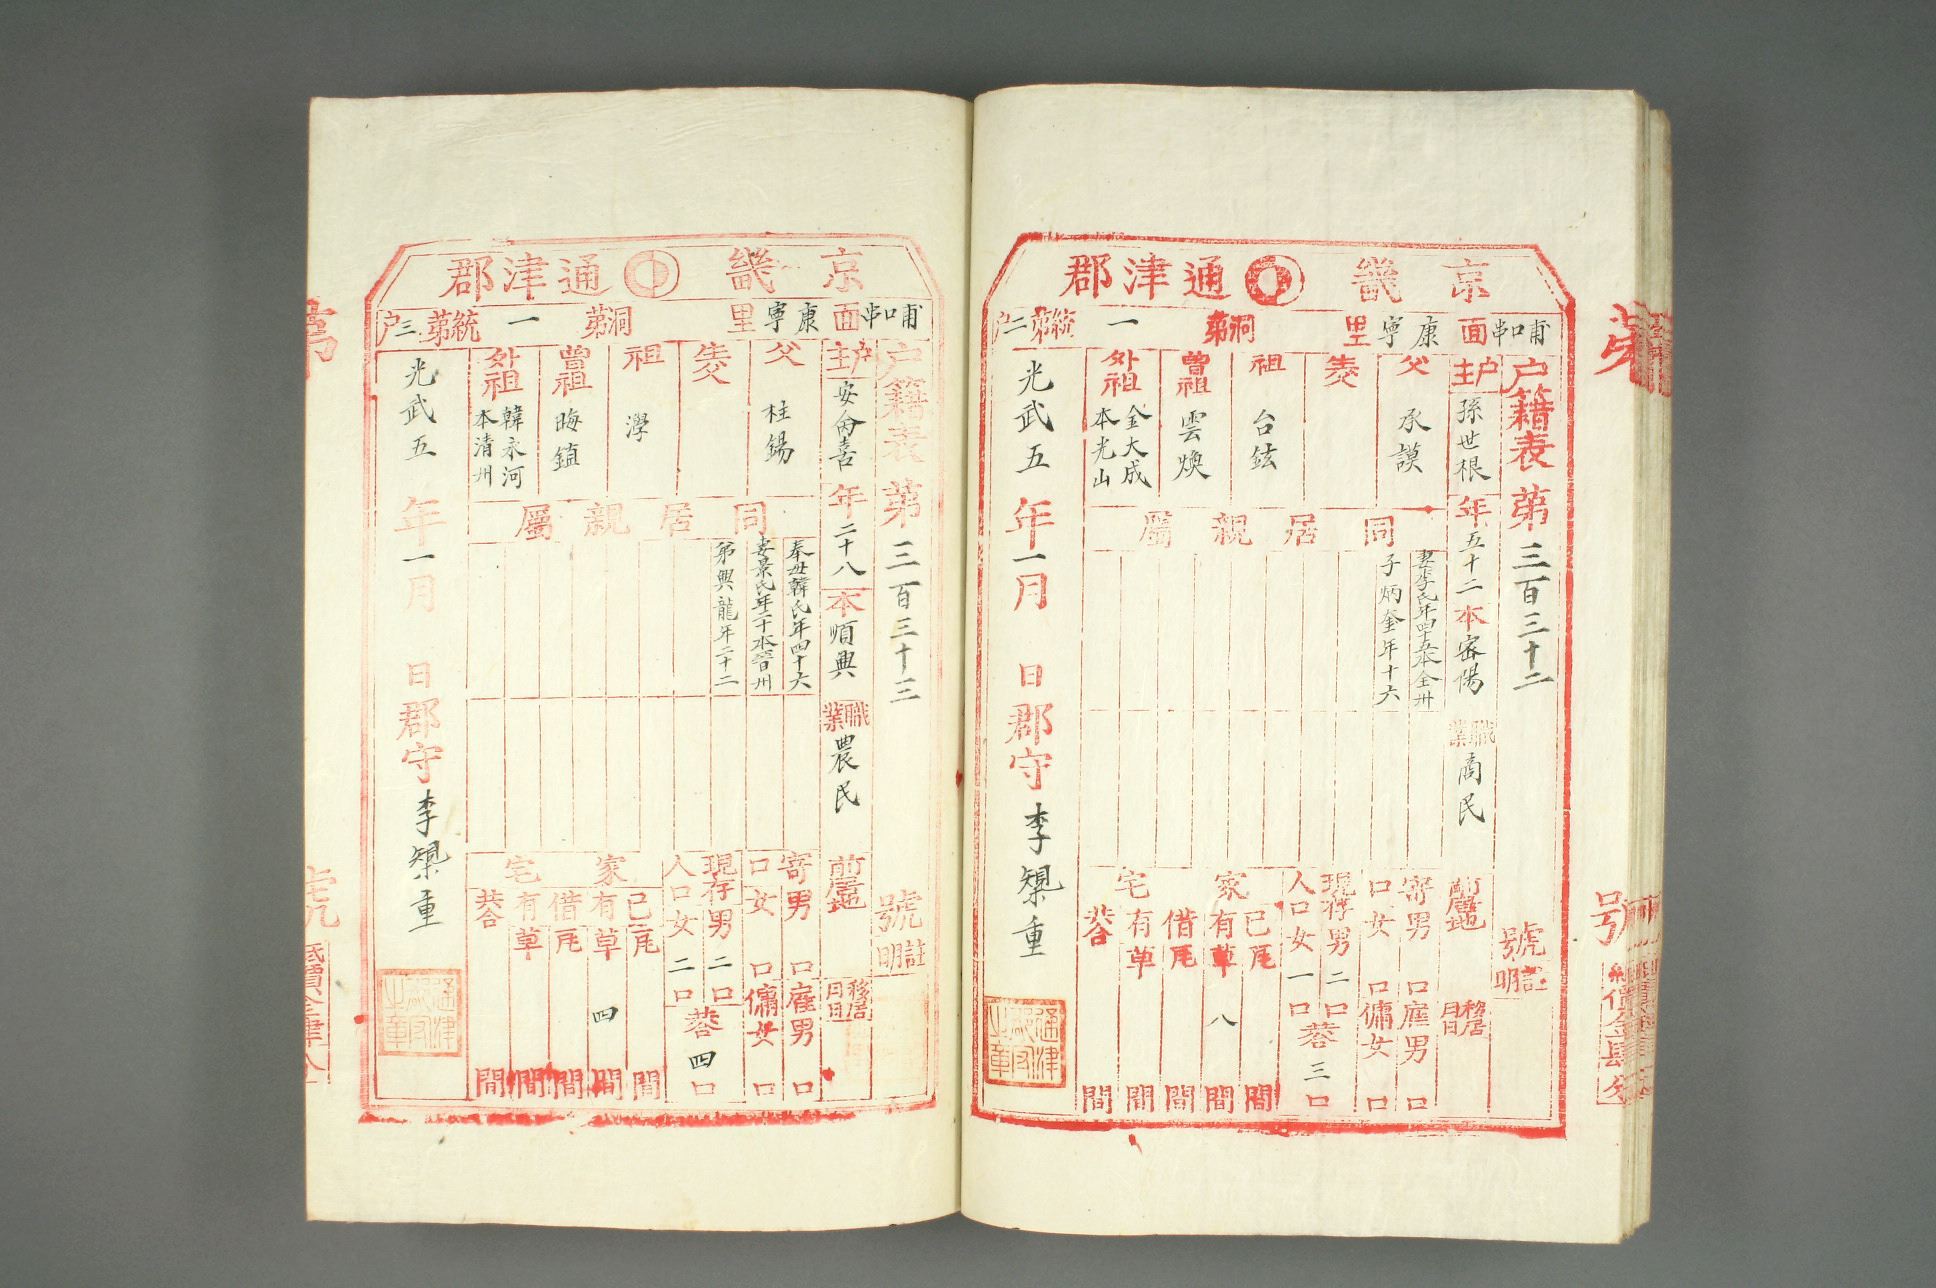 京畿 通津郡
哺口串面 康寧里 洞第 一 統第二戶
戶籍表 第三百三十二 號
註明
戶主 孫世根 年五十二 本密陽 職業 商民 前居地 移居月日
父 承謨
生父
祖 台鉉
曾祖 雲煥
外祖 金大成 本光山
同居親屬
妻李氏年四十五本全州
子炳奎年十六
寄口 男 口 女 口
雇男 口 傭女 口
現存人口 男二口 女一口 共合三口
家宅
已有 瓦 間 草 八 間
借有 瓦 間 草 間
共合 間
光武五年一月 日 郡守 李㮚重
通津郡守之章
第 號
紙價金肆分
京畿 通津郡
哺口串面 康寧里 洞第 一 統第三戶
戶籍表 第三百三十三 號
註明
戶主 安侖喜 年二十八 本順興 職業 農民 前居地 移居月日
父 柱錫
生父
祖 㶅
曾祖 晦鎮
外祖 韓永河 本清州
同居親屬
奉母韓氏年四十六
妻景氏年二十本晉州
弟興龍年二十二
寄口 男 口 女 口
雇男 口 傭女 口
現存人口 男二口 女二口 共合四口
家宅
已有 瓦 間 草 四 間
借有 瓦 間 草 間
共合 間
光武五年一月 日 郡守 李㮚重
通津郡守之章
第 號
紙價金肆分